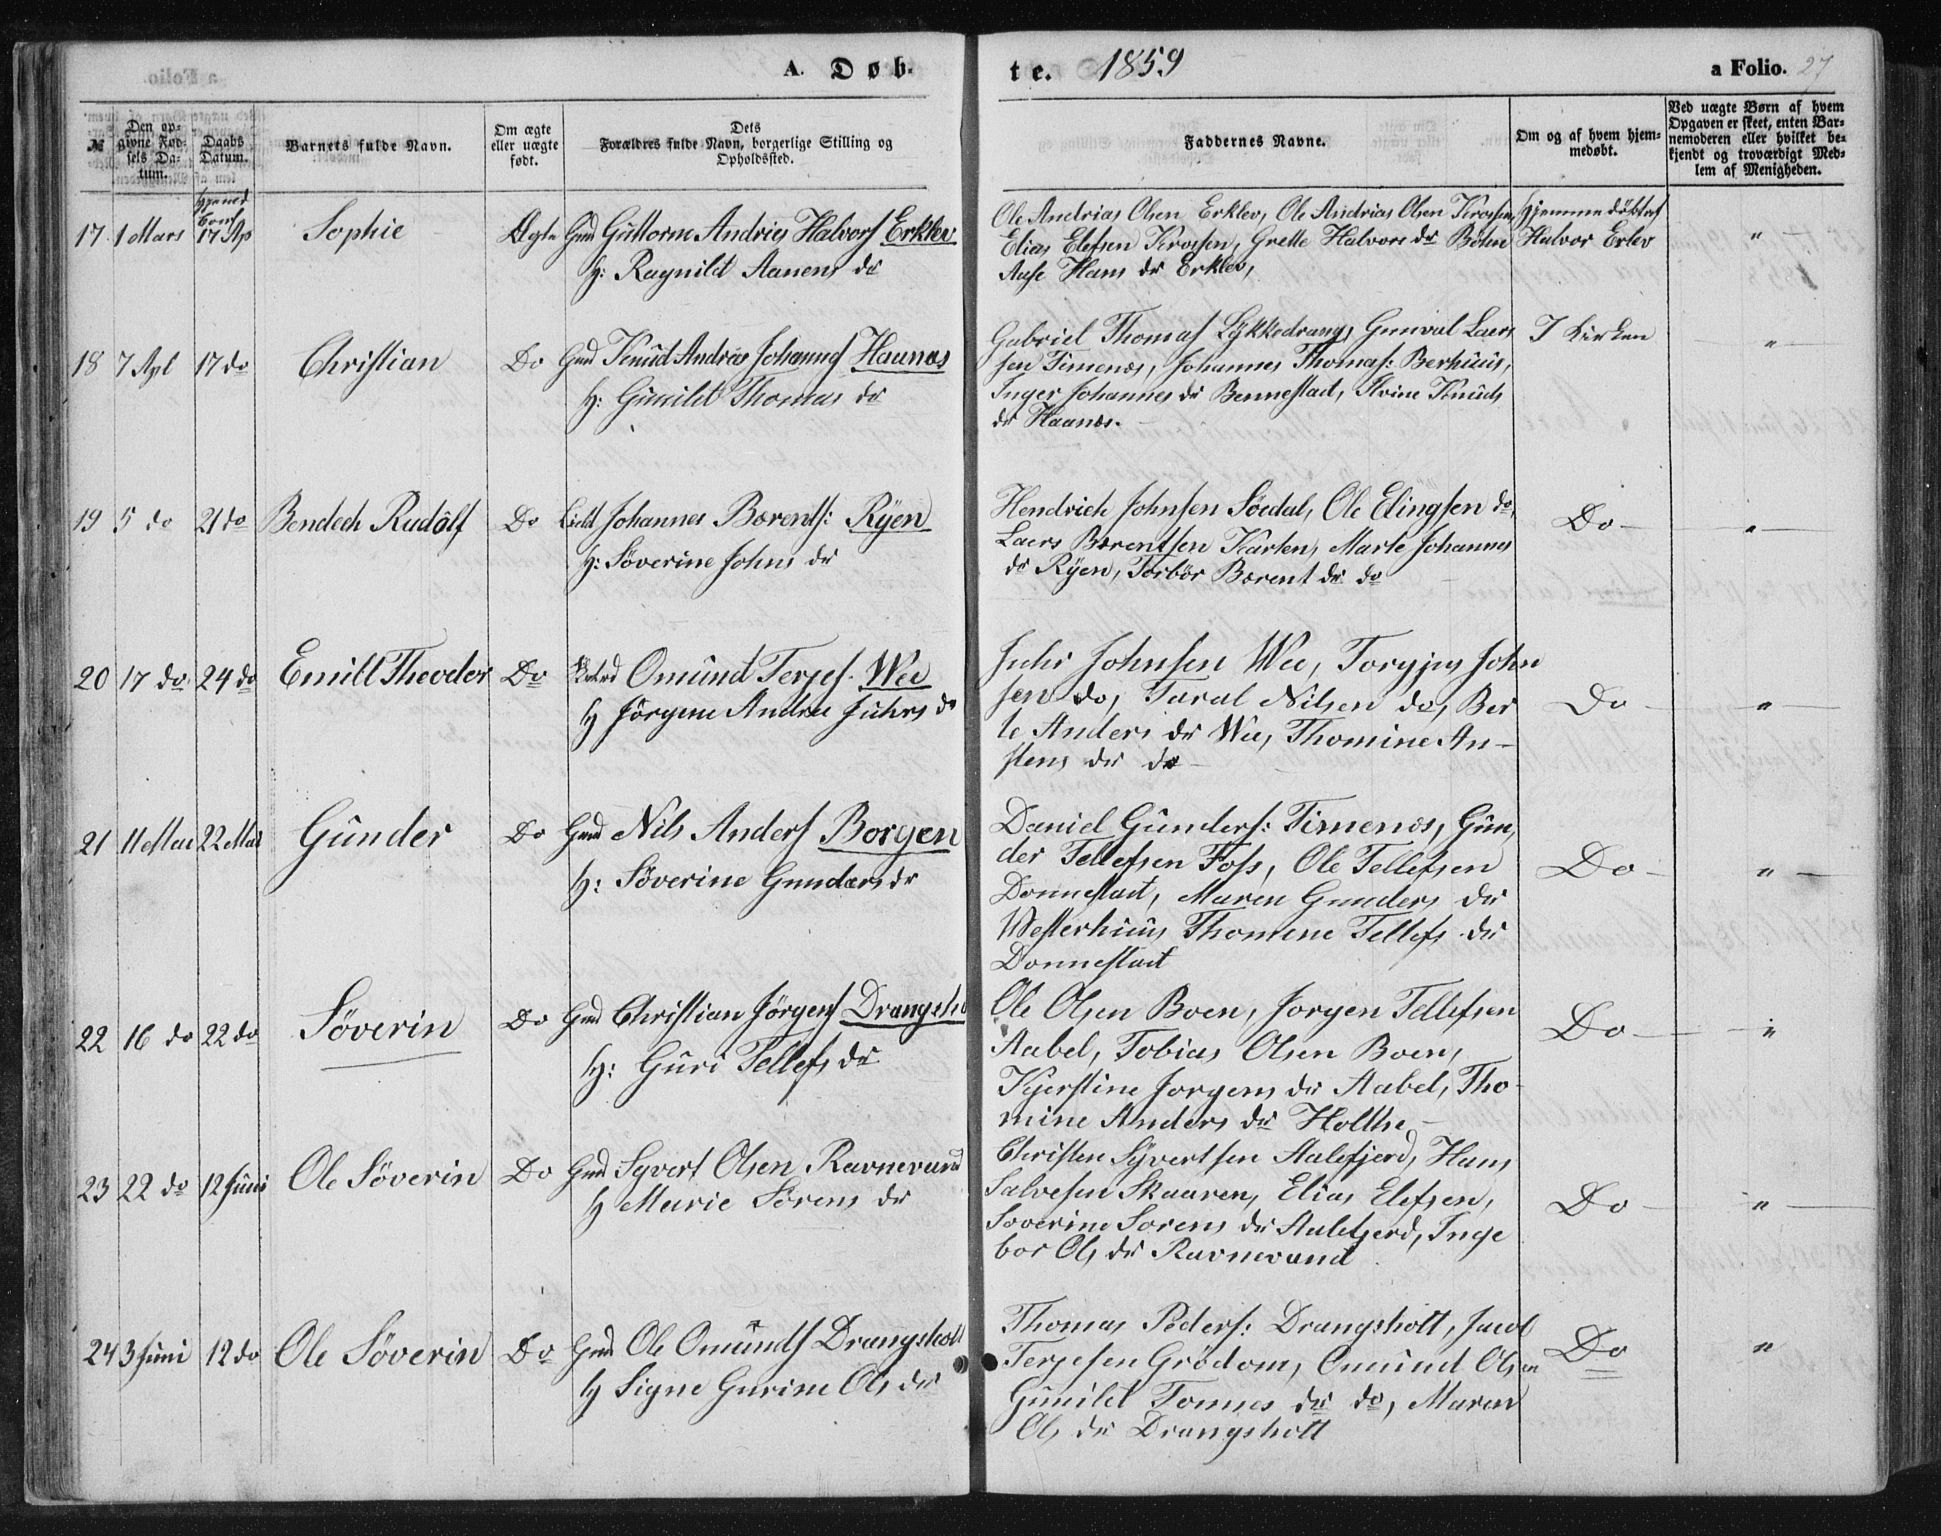 A. Døb-
te. 1859
a Folio. 27
№
Den op-
givne Fød-
sels Da-
tum.
Daabs
Datum.
Barnets fulde Navn.
Om ægte
eller uægte
født.
Dets
Forældres fulde Navn, borgerlige Stilling og
Opholdssted.
Faddernes Navne.
Om og af hvem hjem-
medøbt.
Ved uægte Børn af hvem
Opgaven er skeet, enten Bar-
nemoderen eller hvilket be-
kjendt og troværdigt Med-
lem af Menigheden.
17 1 Mars 17 Ap Sophie Ægte Gmd Guttorm Andries Halvors Erklev
H: Ragnild Aanens dr
Ole Andrias Olsen Erklev, Ole Andrias Olsen Krossen,
Elias Elefsen Krossen, Grette Halvors dr Böhn
Aase Hans dr Erklev,
Hjemmedöbt af
Halvor Erlev "
18 7 Apl 17 do Christian Do Gmd Knud Andrias Johannes Haanæs
H: Gunild Thomas dr
Gabriel Thomas Lykkedrang, Gunval Laers
sen Timenes, Johannes Thomas: Berhuus,
Inger Johannes dr Bennestad, Alvine Knuds
dr Haanæs.
I Kirken "
19 5 do 21 do Bendech Rudolf Do Johannes Børents: Ryen
H: Söverine Johns dr
Hendrich Johnsen Söedal, Ole Elingsen do,
Laers Børentsen Karten, Marte Johannes
dr Ryen, Torbör Børent dr do
Do "
20 17 do 24 do Emill Theodor Do Omund Terjes. Wee
H Jörgine Andrea Juhrs dr
Juhr Johnsen Wee, Torgjus John
sen do, Taral Nilsen do, Ber
te Anders dr Wee, Thomine An-
stens dr do
Do "
21 11 Mai 22 Mai Gunder Do Gmd Nils Anders Borgen
H: Söverine Gunders dr
Daniel Gunders: Timenes, Gun,
der Tellefsen Foss, Ole Tellefsen
Donnestad, Maren Gunders dr
Westerhuus Thomine Tellefs dr
Donnestad
Do "
22 16 do 22 do Söverin Do Gmd Christian Jörgens Drangsho
H: Guri Tellefs dr
Ole Olsen Boen, Jorgen Tellefsen
Aabel, Tobias Olsen Boen,
Kjerstine Jorgens dr Aabel, Tho
mine Anders dr Holthe
Do "
23 22 do 12 Juni Ole Söverin Do Gmd Syvert Olsen Ravnevand
H Marie Sörens dr
Christen Syvertsen Aalefjerd, Hans
Salvesen Skaaren, Elias Elefsen,
Soverine Sorens dr Aalefjerd, Inge
bor Ols dr Ravnevand
Do "
24 3 Juni 12 do Ole Söverin Do Gmd Ole Omunds Drangsholt
H Signe Gurine Ols dr
Thomas Peders: Drangsholt, Jacob
Terjesen Grödom, Omund Olsen
Gunild Tonnes dr do, Maren
Ols dr Drangsholt
Do "